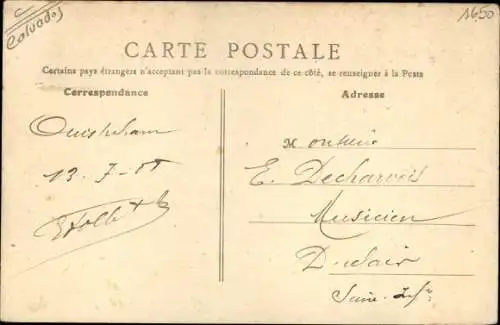 C
Calvados
1650
CARTE POSTALE
Certains pays étrangers n'acceptant pas la correspondance de ce côté, se renseigner à la Poste
Correspondance
Adresse
Ouistreham
13-7-05
Monsieur
E. Decharvois
Musicien
Duclair
Seine-Infre